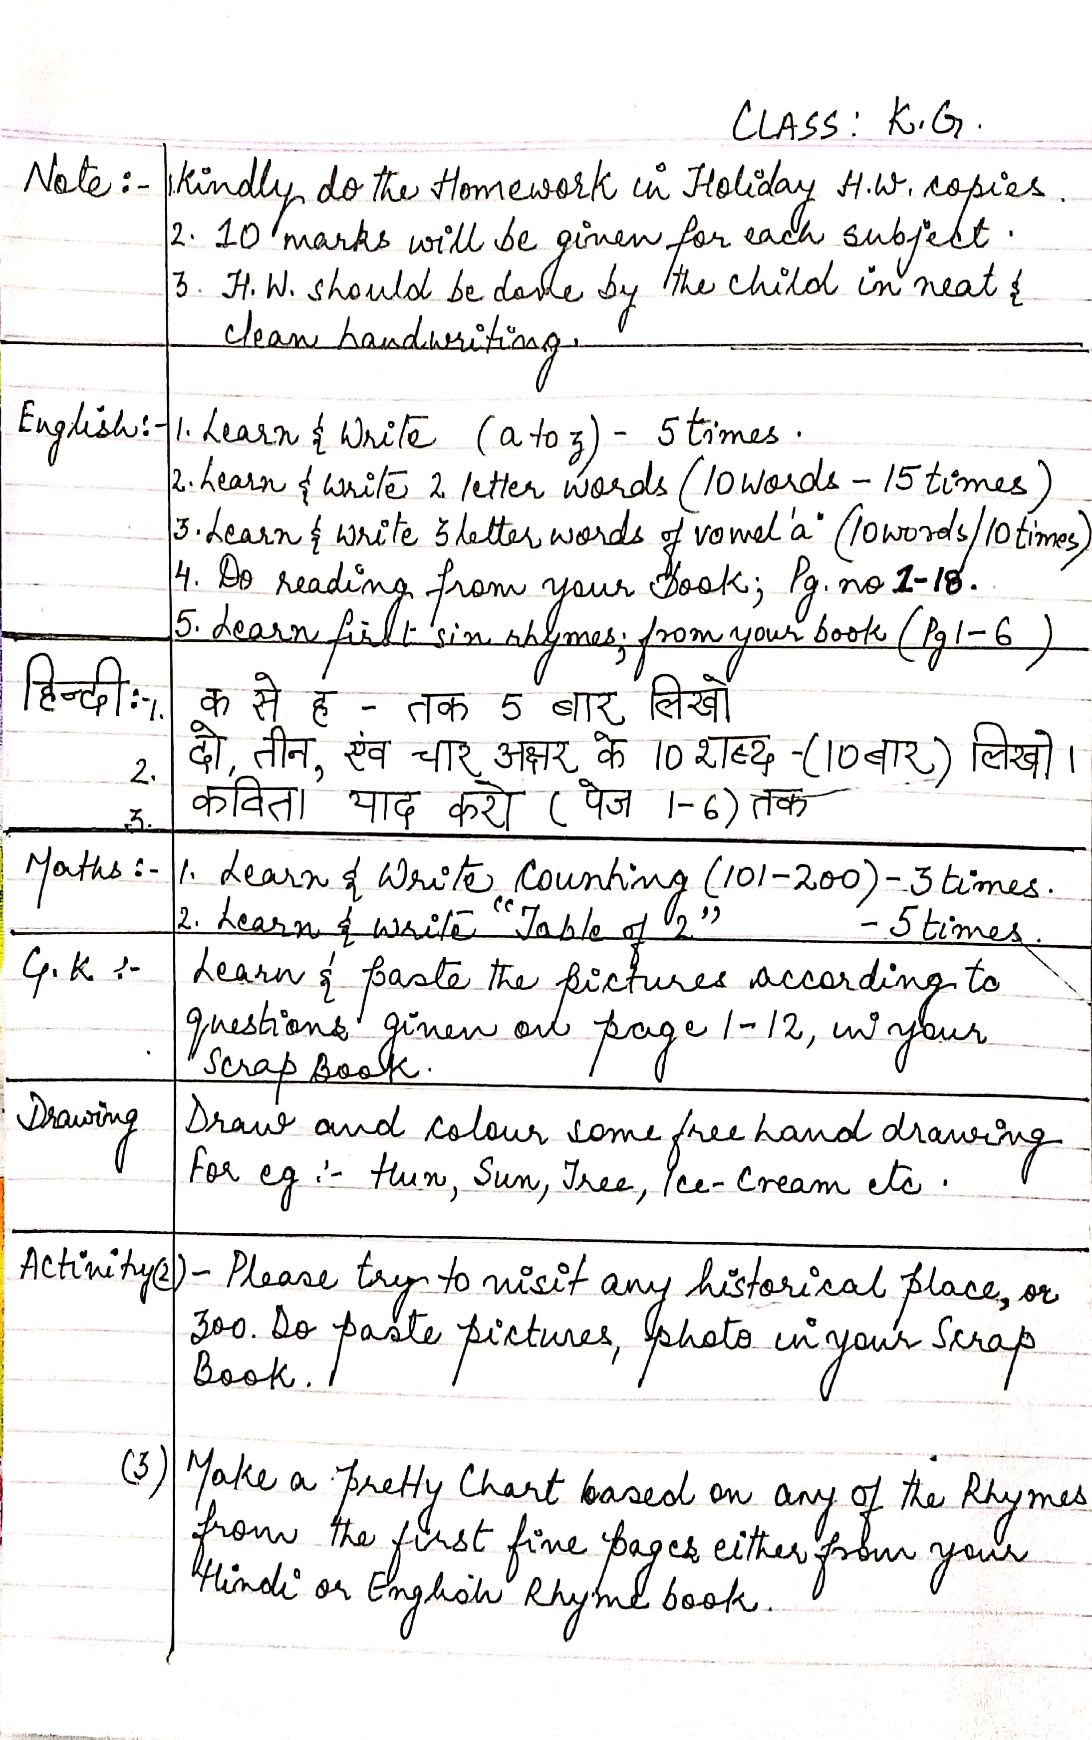 CLASS: K.G.
Note :- 1. Kindly do the Homework in Holiday H.W. copies.
2. 10 marks will be given for each subject.
3. H.W. should be done by the child in neat &
clean handwriting.
English :- 1. Learn & Write (a to z) - 5 times.
2. Learn & write 2 letter words (10 words - 15 times)
3. Learn & write 3 letter words of vowel 'a' (10 words/10 times)
4. Do reading from your Book; Pg. no 1-18.
5. Learn first six rhymes; from your book (Pg 1-6)
हिन्दी :- 1. क से ह - तक 5 बार लिखो
2. दो, तीन, एंव चार अक्षर के 10 शब्द - (10 बार) लिखो।
3. कविता याद करो (पेज 1-6) तक
Maths :- 1. Learn & Write Counting (101-200) - 3 times.
2. Learn & write "Table of 2" - 5 times.
G.K :- Learn & paste the pictures according to
questions given on page 1-12, in your
Scrap Book.
Drawing Draw and colour some free hand drawing
For eg :- Hun, Sun, Tree, Ice-Cream etc.
Activity (2) - Please try to visit any historical place, or
zoo. Do paste pictures, photo in your Scrap
Book.
(3) Make a pretty Chart based on any of the Rhymes
from the first five pages either from your
Hindi or English Rhyme book.